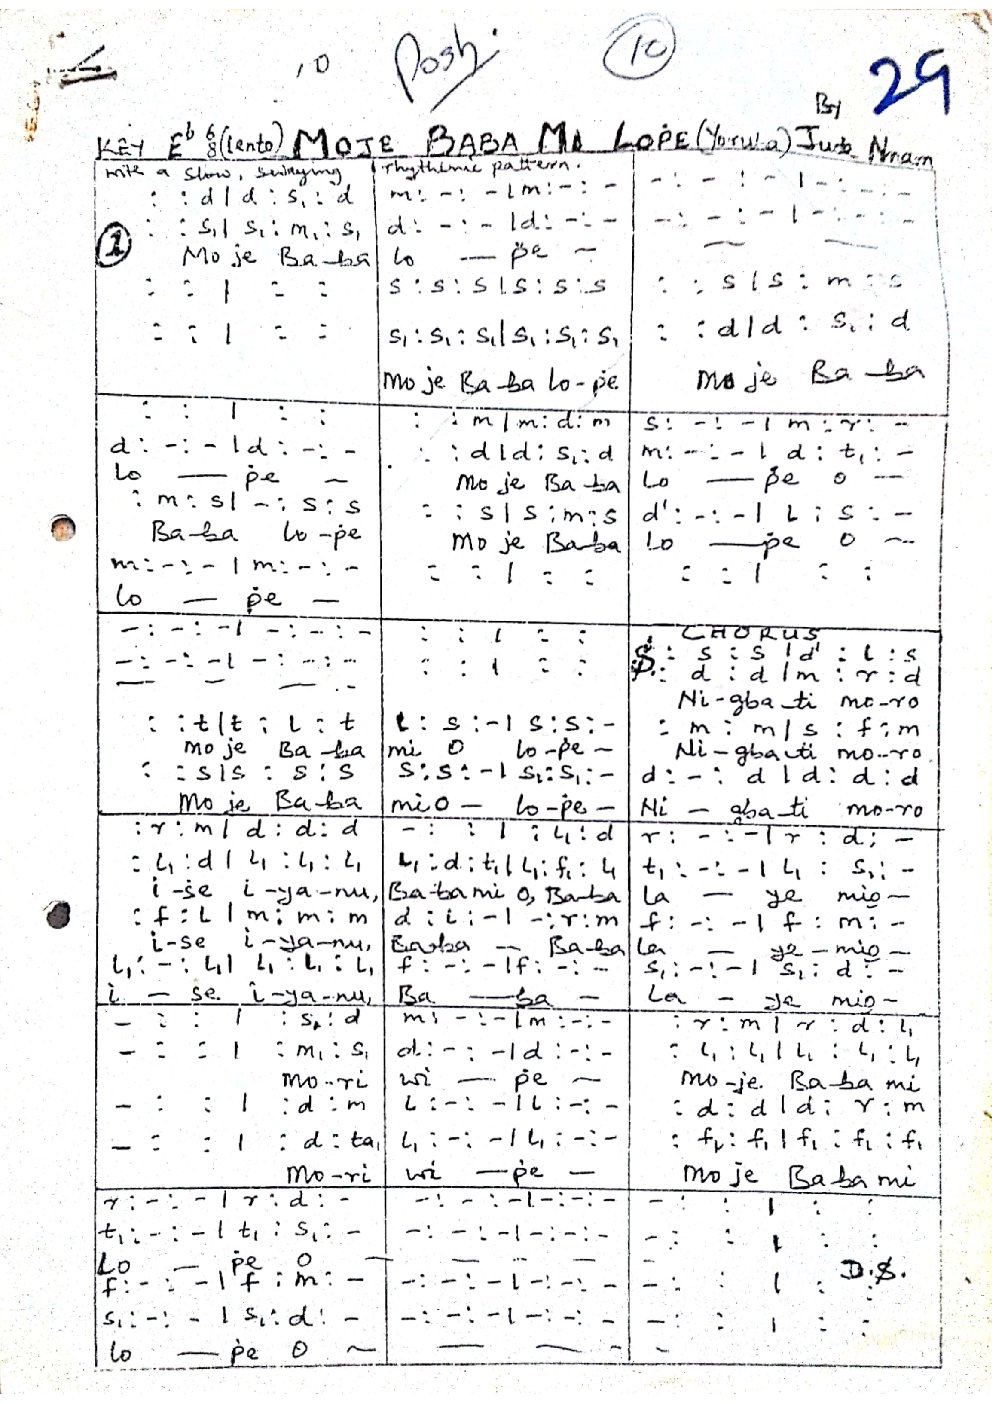 10
Posh.
10
29
By
KEY Eb 6/8 (Lento) MOJE BABA MI LOPE (Yoruba) Jude Nnam
with a slow, swaying rhythmic pattern.
1
: : d | d : s₁ : d
: : s₁ | s₁ : m₁ : s₁
Mo je Ba-ba
: : | : :
: : | : :
m : - : - | m : - : -
d : - : - | d : - : -
lo — pe ~
s : s : s | s : s : s
s₁ : s₁ : s₁ | s₁ : s₁ : s₁
Mo je Ba-ba lo-pe
- : - : - | - : - : -
- : - : - | - : - : -
: : s | s : m : s
: : d | d : s₁ : d
Mo je Ba-ba
: : | : :
d : - : - | d : - : -
lo — pe ~
: m : s | - : s : s
Ba-ba lo-pe
m : - : - | m : - : -
lo — pe —
: : m | m : d : m
: : d | d : s₁ : d
Mo je Ba ba
: : s | s : m : s
Mo je Ba-ba
: : | : :
s : - : - | m : r : -
m : - : - | d : t₁ : -
lo — pe o —
d' : - : - | l : s : -
lo — pe O ~
: : | : :
- : - : - | - : - : -
- : - : - | - : - : -
: : t | t : l : t
Mo je Ba-ba
: : s | s : s : s
Mo je Ba-ba
: : | : :
: : | : :
l : s : - | s : s : -
mi O lo-pe ~
s : s : - | s₁ : s₁ : -
mi O — lo-pe —
CHORUS
$ : s : s | d' : l : s
: d : d | m : r : d
Ni-gba-ti mo-ro
: m : m | s : f : m
Ni-gba-ti mo-ro
d : - : d | d : d : d
Ni - gba-ti mo-ro
: r : m | d : d : d
: l₁ : d | l₁ : l₁ : l₁
i-se i-ya-nu,
: f : l | m : m : m
i-se i-ya-nu,
l₁ : - : l₁ | l₁ : l₁ : l₁
i — se i-ya-nu,
- : : | : l₁ : d
l₁ : d : t₁ | l₁ : f₁ : l₁
Ba-ba mi O, Ba-ba
d : l : - | - : r : m
Ba-ba — Ba-ba
f : - : - | f : - : -
Ba — ba —
r : - : - | r : d : -
t₁ : - : - | l₁ : s₁ : -
la — ye mio —
f : - : - | f : m : -
la — ye-mio —
s₁ : - : - | s₁ : d : -
La — ye mio —
- : : | : s₁ : d
- : : | : m₁ : s₁
Mo-ri
- : : | : d : m
- : : | : d : ta₁
Mo-ri
m : - : - | m : - : -
d : - : - | d : - : -
wi — pe ~
l : - : - | l : - : -
l₁ : - : - | l₁ : - : -
wi — pe —
: r : m | r : d : l₁
: l₁ : l₁ | l₁ : l₁ : l₁
Mo-je Ba-ba mi
: d : d | d : r : m
: f₁ : f₁ | f₁ : f₁ : f₁
Mo je Ba ba mi
r : - : - | r : d : -
t₁ : - : - | t₁ : s₁ : -
Lo — pe O —
f : - : - | f : m : -
s₁ : - : - | s₁ : d : -
lo — pe O ~
- : - : - | - : - : -
- : - : - | - : - : -
- : - : - | - : - : -
- : - : - | - : - : -
- : : | : :
- : : | : :
D.$.
- : : | : :
- : : | : :